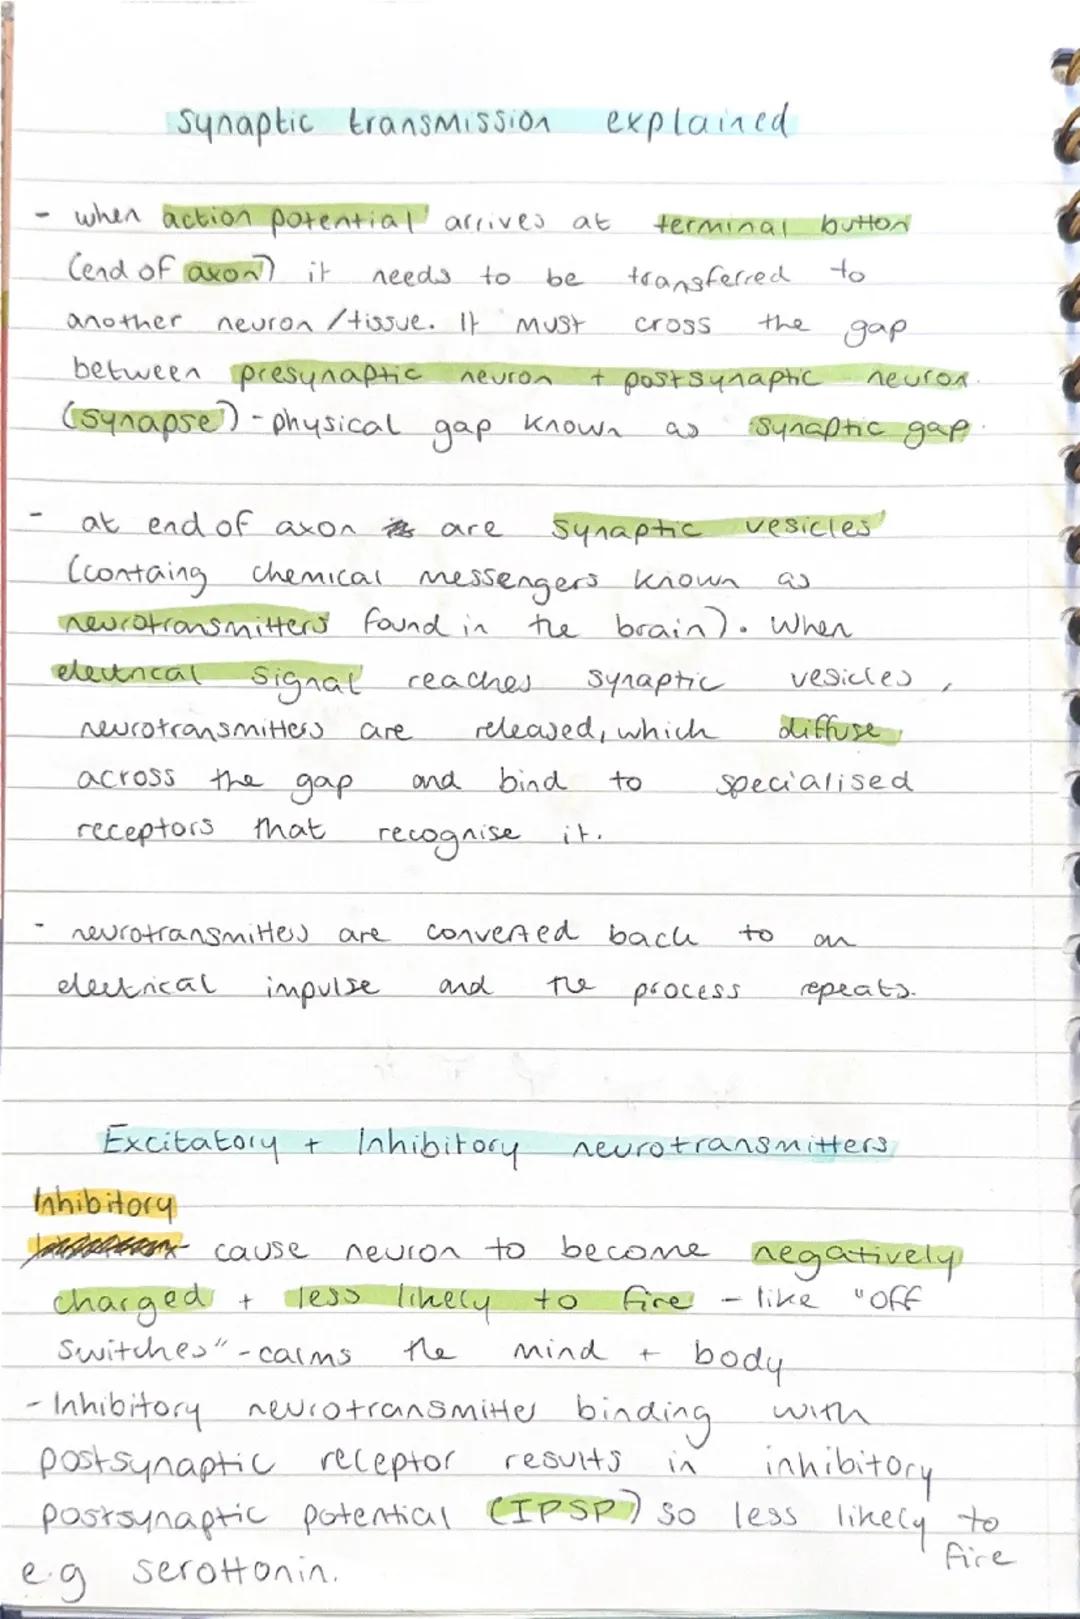 Synaptic transmission explained
- when action potential arrives at terminal button
(end of axon) it needs to be transferred to
another neuron/tissue. It must cross the gap
between presynaptic neuron + postsynaptic neuron.
(synapse) - physical gap known as synaptic gap.
- at end of axon are synaptic vesicles
(containg chemical messengers known as
neurotransmitters found in the brain). When
electrical signal reaches synaptic vesicles,
neurotransmitters are released, which diffuse
across the gap and bind to specialised
receptors that recognise it.
- neurotransmitters are converted back to an
electrical impulse and the process repeats.
Excitatory + Inhibitory neurotransmitters
Inhibitory
- cause neuron to become negatively
charged + less likely to fire - like "off
switches" - calms the mind + body
- Inhibitory neurotransmitter binding with
postsynaptic receptor results in inhibitory
postsynaptic potential (IPSP) so less likely to
fire
e.g serottonin.